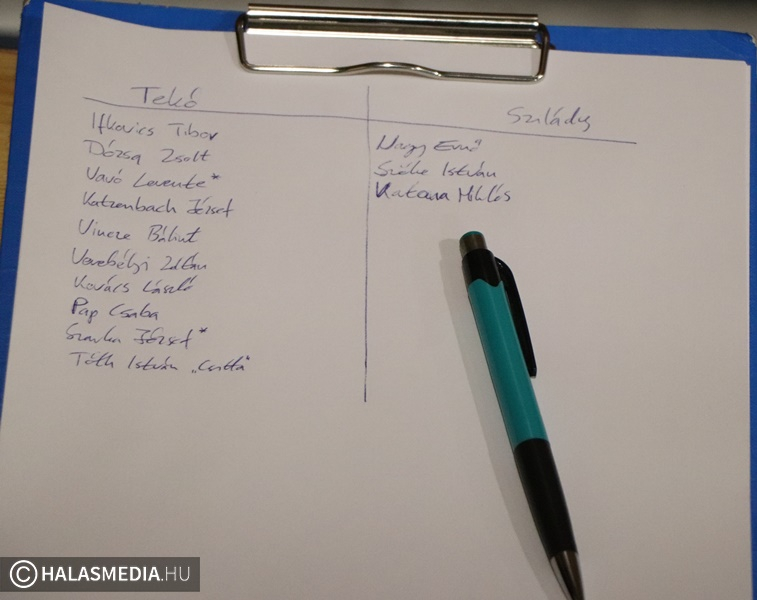 Tekó
Ifkovics Tibor
Dózsa Zsolt
Vavó Levente*
Katzenbach József
Vincze Bálint
Verebélyi Zoltán
Kovács László
Pap Csaba
József*
Tóth István „Csitta"
Sziládys
Nagy Ernő
Szőke István
Katona Miklós
© HALASMEDIA.HU